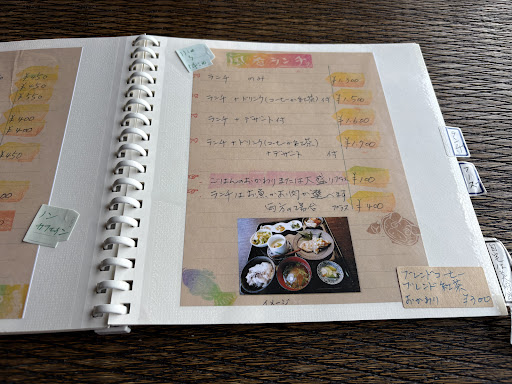 ¥450
¥450
¥550
¥400
¥400
¥450
ノン
カフェイン
ランチ
ランチ のみ ¥1,300
ランチ + ドリンク(コーヒーか紅茶)付 ¥1,500
ランチ + デザート 付 ¥1,600
ランチ + ドリンク(コーヒーか紅茶) ¥1,700
+ デザート 付
ごはんのおかわりまたは大盛りプラス ¥100
ランチはお魚かお肉が選べます
両方の場合 プラス ¥400
イメージ
ブレンドコーヒー
ブレンド紅茶
おかわり ¥300